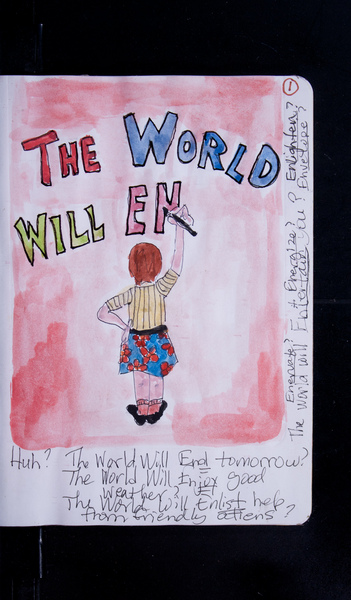 THE WORLD
WILL EN
Huh? The World Will End tomorrow?
The World Will Enjoy good
weather? or
The World Will Enlist help
from friendly aliens?
Enervate? + Energize? Enlighten?
The World Will Entertain You? Envelope?
1